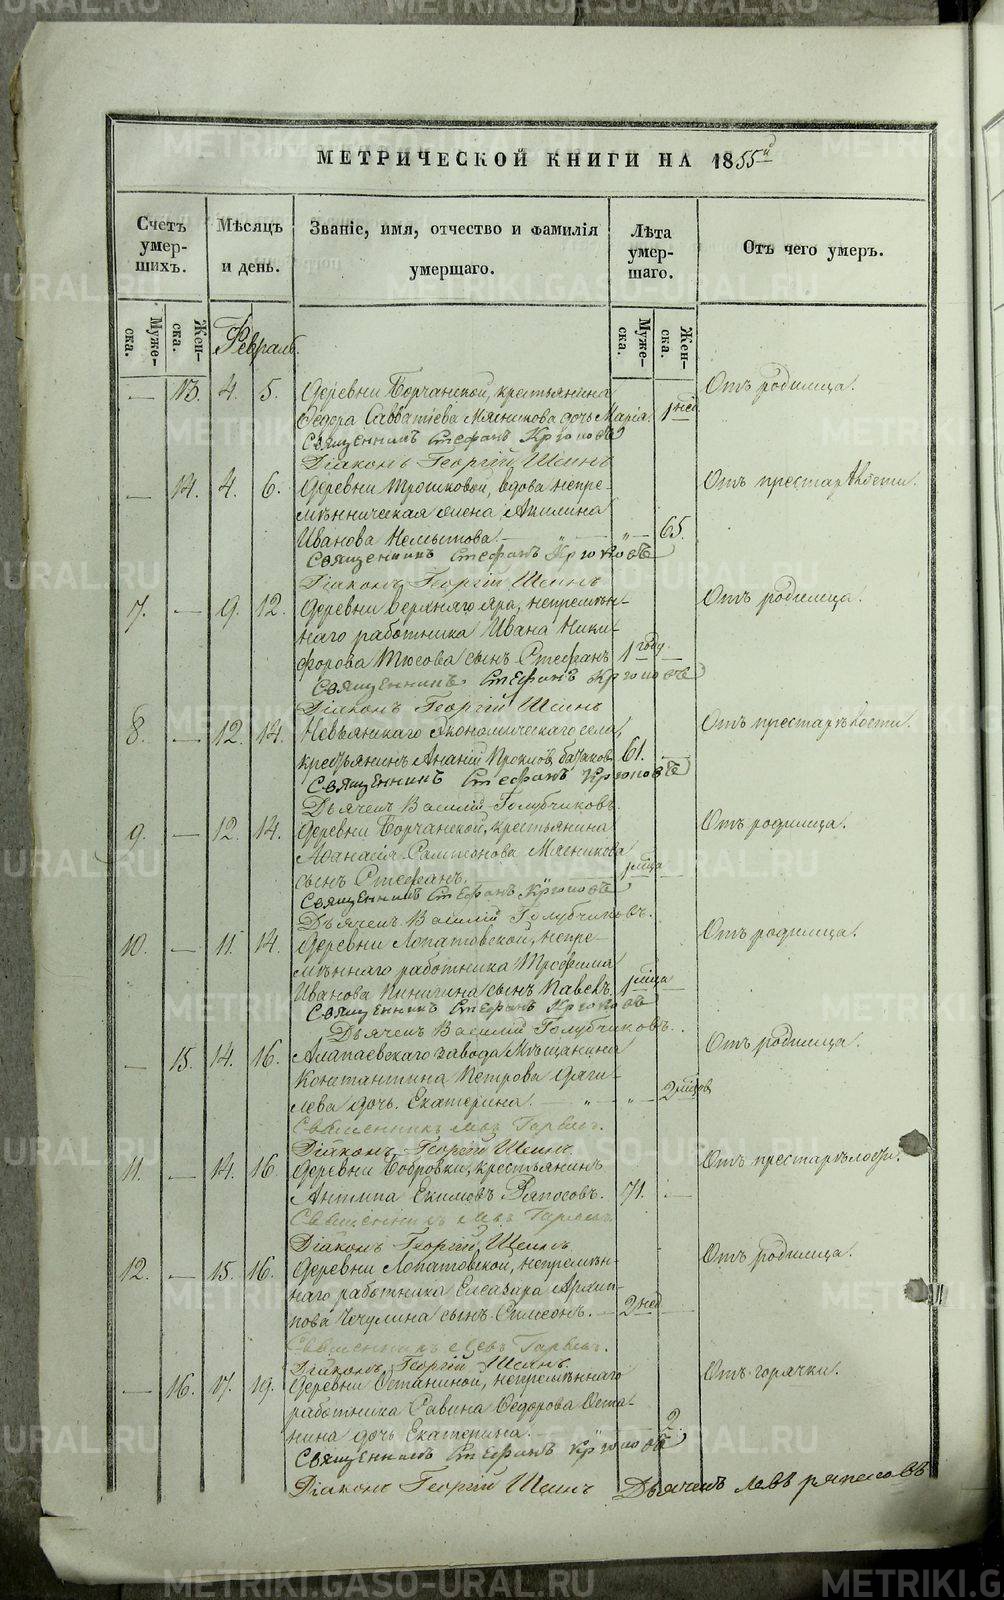 МЕТРИЧЕСКОЙ КНИГИ НА 1855й
Счетъ умер-шихъ.
Мѣсяцъ и день.
Званіе, имя, отчество и фамилія умершаго.
Лѣта умер-шаго.
Отъ чего умеръ.
Муже-ска.
Жен-ска.
Муже-ска.
Жен-ска.
Февраль.
— 13. 4. 5. Деревни Борчанской, крестьянина Отъ родимца.
Ѳедора Савватіева Мясникова дочь Марія. 1 нед.
Священникъ Стефанъ
Діаконъ Георгій Шеинъ
— 14. 4. 6. Деревни Трошковой, вдова непре- Отъ престарѣлости.
мѣнническая жена Акилина
Иванова — „ — „ — 65.
Священникъ Стефанъ
Діаконъ Георгій Шеинъ
7. — 9. 12. Деревни Верхняго яра, непремѣн- Отъ родимца.
наго работника Ивана Ники-
форова сынъ Стефанъ 1 году. —
Священникъ Стефанъ
Діаконъ Георгій Шеинъ
8. — 12. 14. Невьянскаго Экономическаго села, Отъ престарѣлости.
крестьянинъ Ананій 61. —
Священникъ Стефанъ
Дьячекъ Василій Голубчиковъ.
9. — 12. 14. Деревни Борчанской, крестьянина Отъ родимца.
Аѳанасія Сампсонова Мясникова
сынъ Стефанъ. — 1 м̃ца
Священникъ Стефанъ
Дьячекъ Василій Голубчиковъ.
10. — 11. 14. Деревни Лопатовской, непре- Отъ родимца.
мѣннаго работника Трофима
Иванова Пинигина сынъ Павелъ. 1 м̃ца
Священникъ Стефанъ
Дьячекъ Василій Голубчиковъ.
— 15. 14. 16. Алапаевскаго завода Мѣщанина Отъ родимца.
Константина Петрова Дяги-
лева дочь Екатерина. — „ — „ — 2 м̃цов
Священникъ Левъ
Діаконъ Георгій Шеинъ.
11. — 14. 16. Деревни Бобровки, крестьянинъ Отъ престарѣлости.
Антипа Екимовъ 71. —
Священникъ Левъ
Діаконъ Георгій Шеинъ
12. — 15. 16. Деревни Лопатовской, непремѣн- Отъ родимца.
наго работника Елеазара Архип-
пова Чечулина сынъ Симеонъ. — 2 нед
Священникъ Левъ
Діаконъ Георгій Шеинъ.
— 16. 17. 19. Деревни Останиной, непремѣннаго Отъ горячки.
работника Савина Ѳедорова Оста-
нина дочь Екатерина. — 2
Священникъ Стефанъ
Діаконъ Георгій Шеинъ Дьячекъ Левъ
METRIKI.GASO-URAL.RU